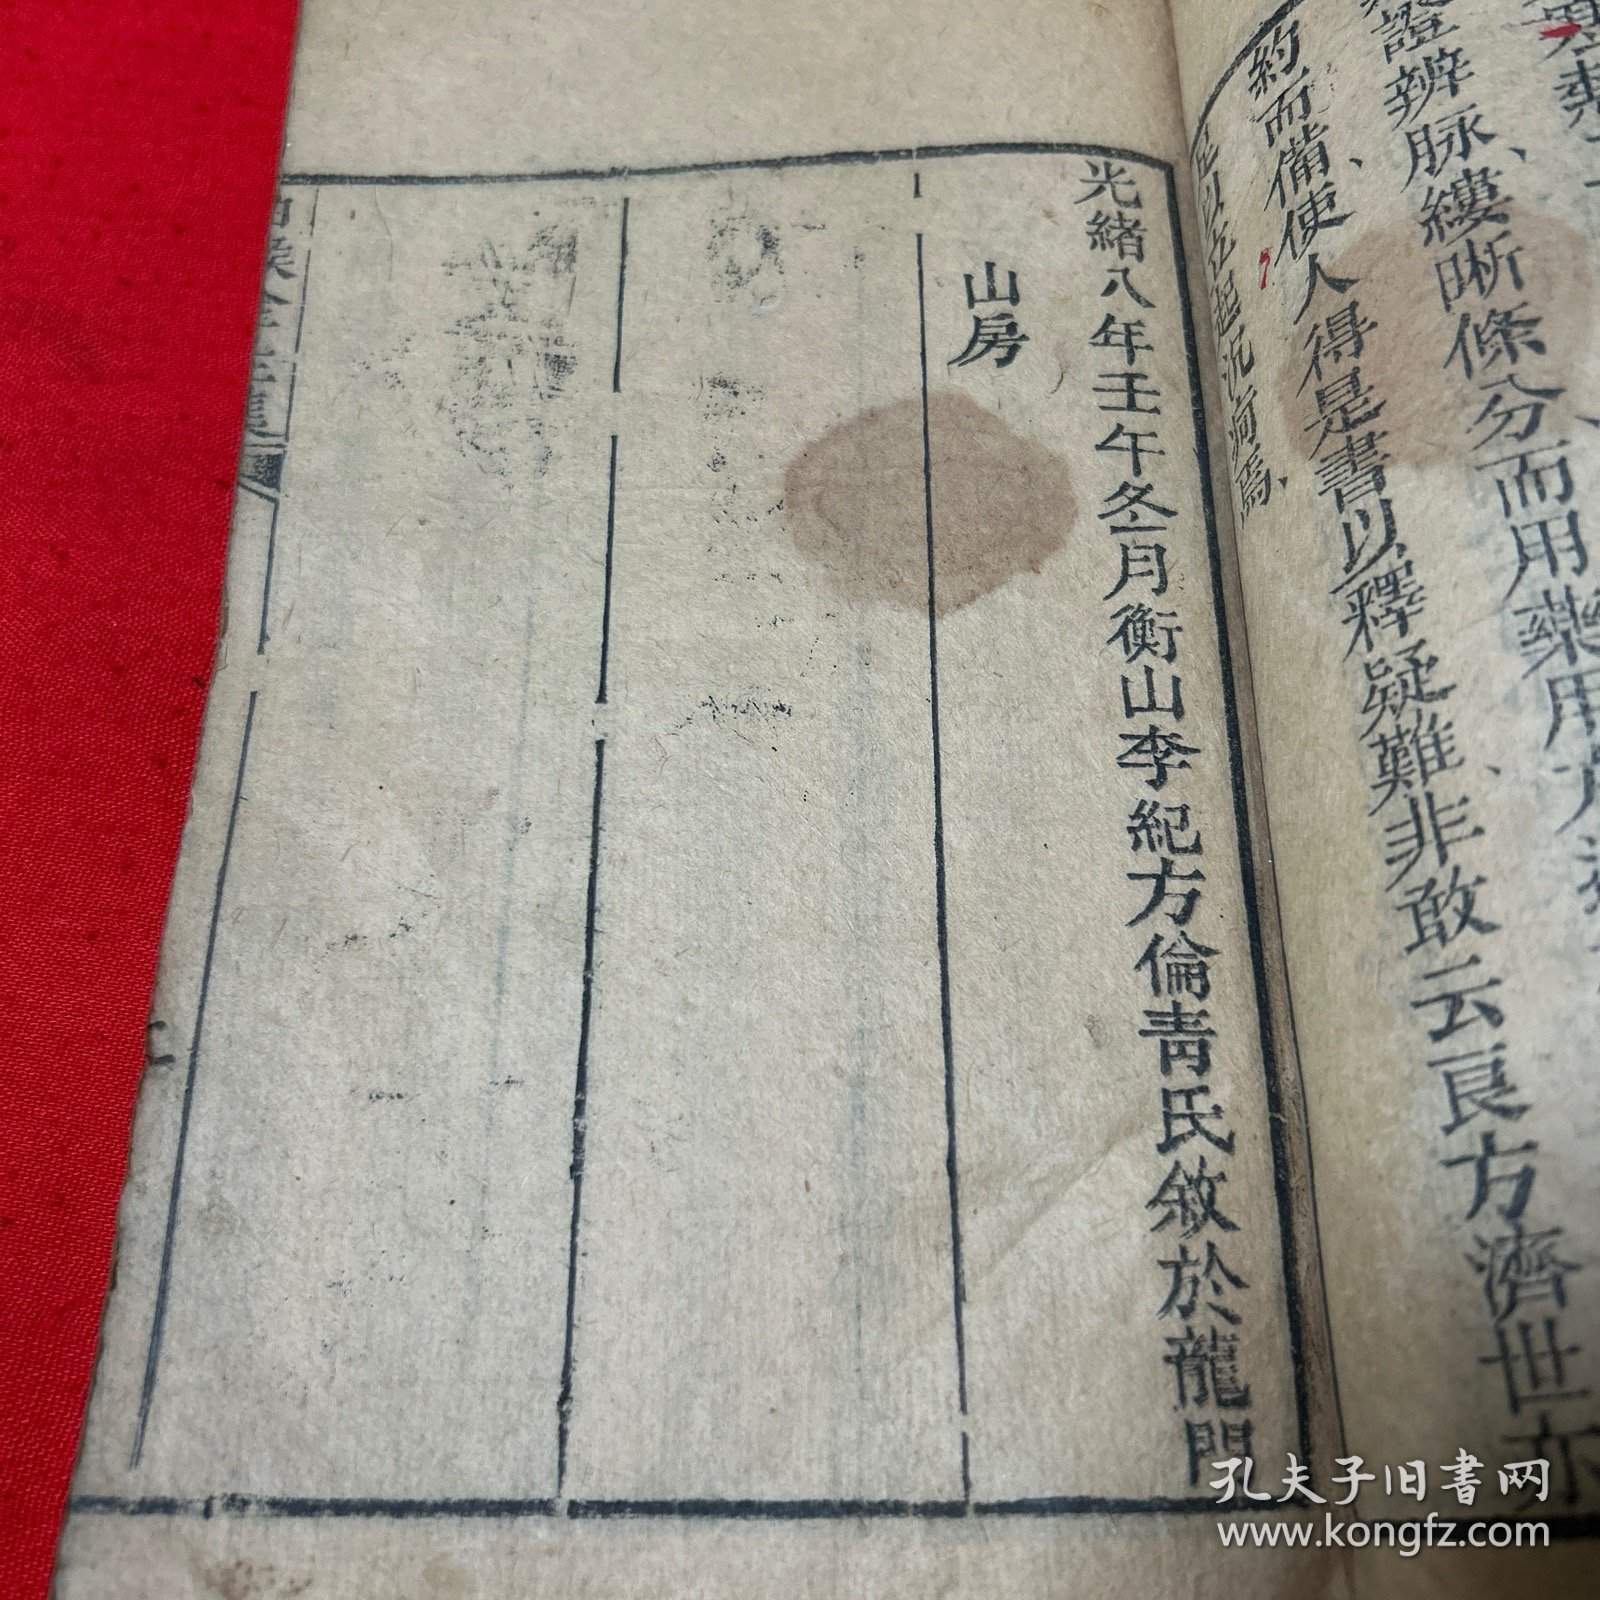 證辨脉縷晰條分而用藥用
約而備使人得是書以釋疑難非敢云良方濟世亦
足以立起沉疴焉
光緒八年壬午冬月衡山李紀方倫青氏敘於龍門
山房
孔夫子旧书网
www.kongfz.com